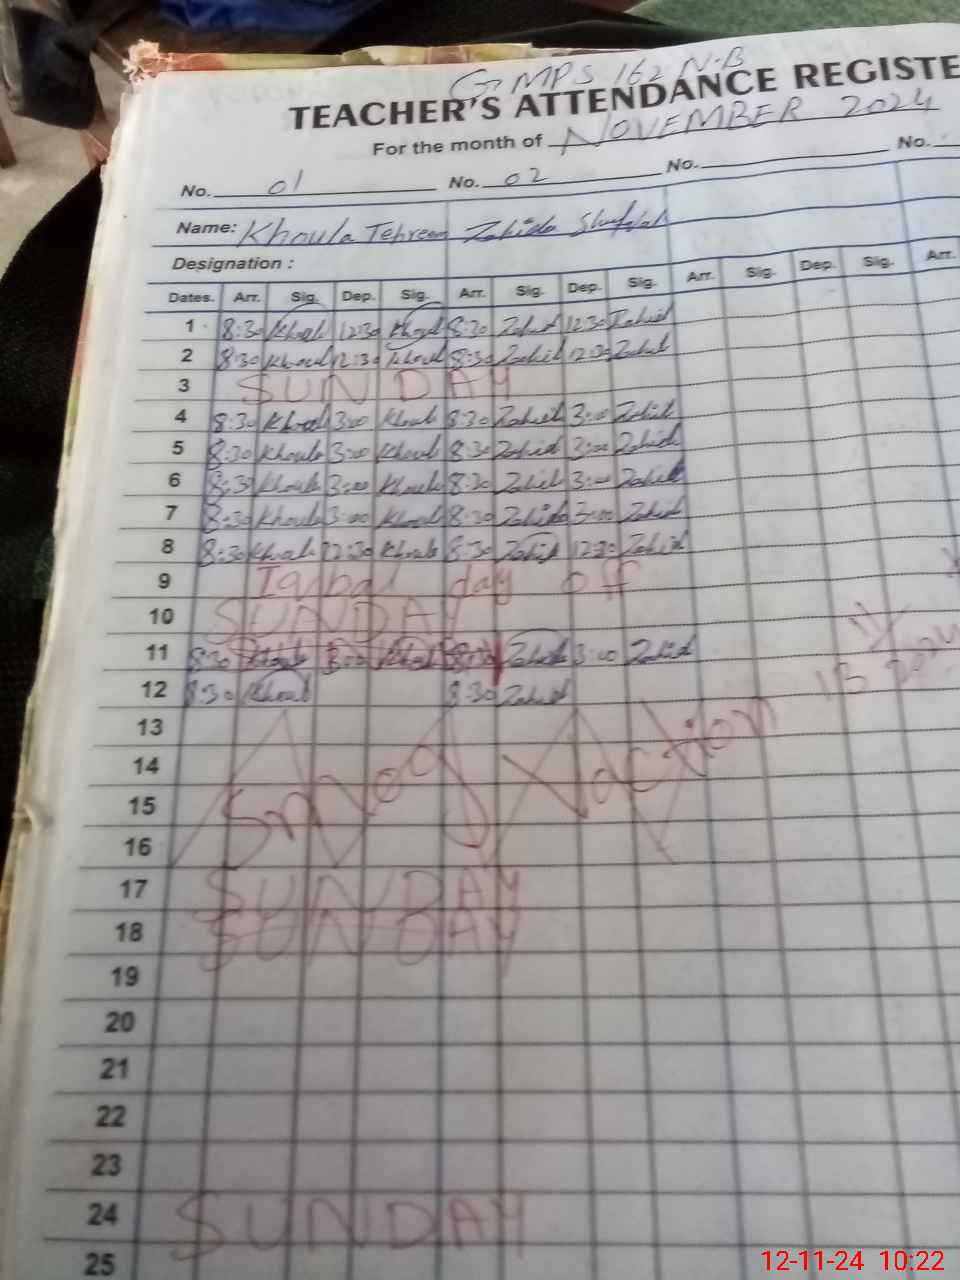 GMPS 162 N.B
TEACHER'S ATTENDANCE REGISTE
For the month of NOVEMBER 2024
No. 01 No. 02 No. No.
Name: Khoula Tehreem Zahida
Designation :
Dates. Arr. Sig. Dep. Sig. Arr. Sig. Dep. Sig. Arr. Sig. Dep. Sig. Arr.
1 8:30 Khoula 12:30 Khoula 8:30 Zahid 12:30 Zahid
2 8:30 Khoula 12:30 Khoula 8:30 Zahid 12:30 Zahid
3 SUNDAY
4 8:30 Khoula 3:00 Khoula 8:30 Zahid 3:00 Zahid
5 8:30 Khoula 3:00 Khoula 8:30 Zahid 3:00 Zahid
6 8:30 Khoula 3:00 Khoula 8:30 Zahid 3:00 Zahid
7 8:30 Khoula 3:00 Khoula 8:30 Zahida 3:00 Zahid
8 8:30 Khoula 12:30 Khoula 8:30 Zahid 12:30 Zahid
9 Iqbal day off
10 SUNDAY
11 8:30 Khoula 3:00 Khoula 8:30 Zahid 3:00 Zahid
12 8:30 Khoula 8:30 Zahid
13
14
15 Smog Vaction 13
16
17 SUNDAY
18 SUNDAY
19
20
21
22
23
24 SUNDAY
25
12-11-24 10:22